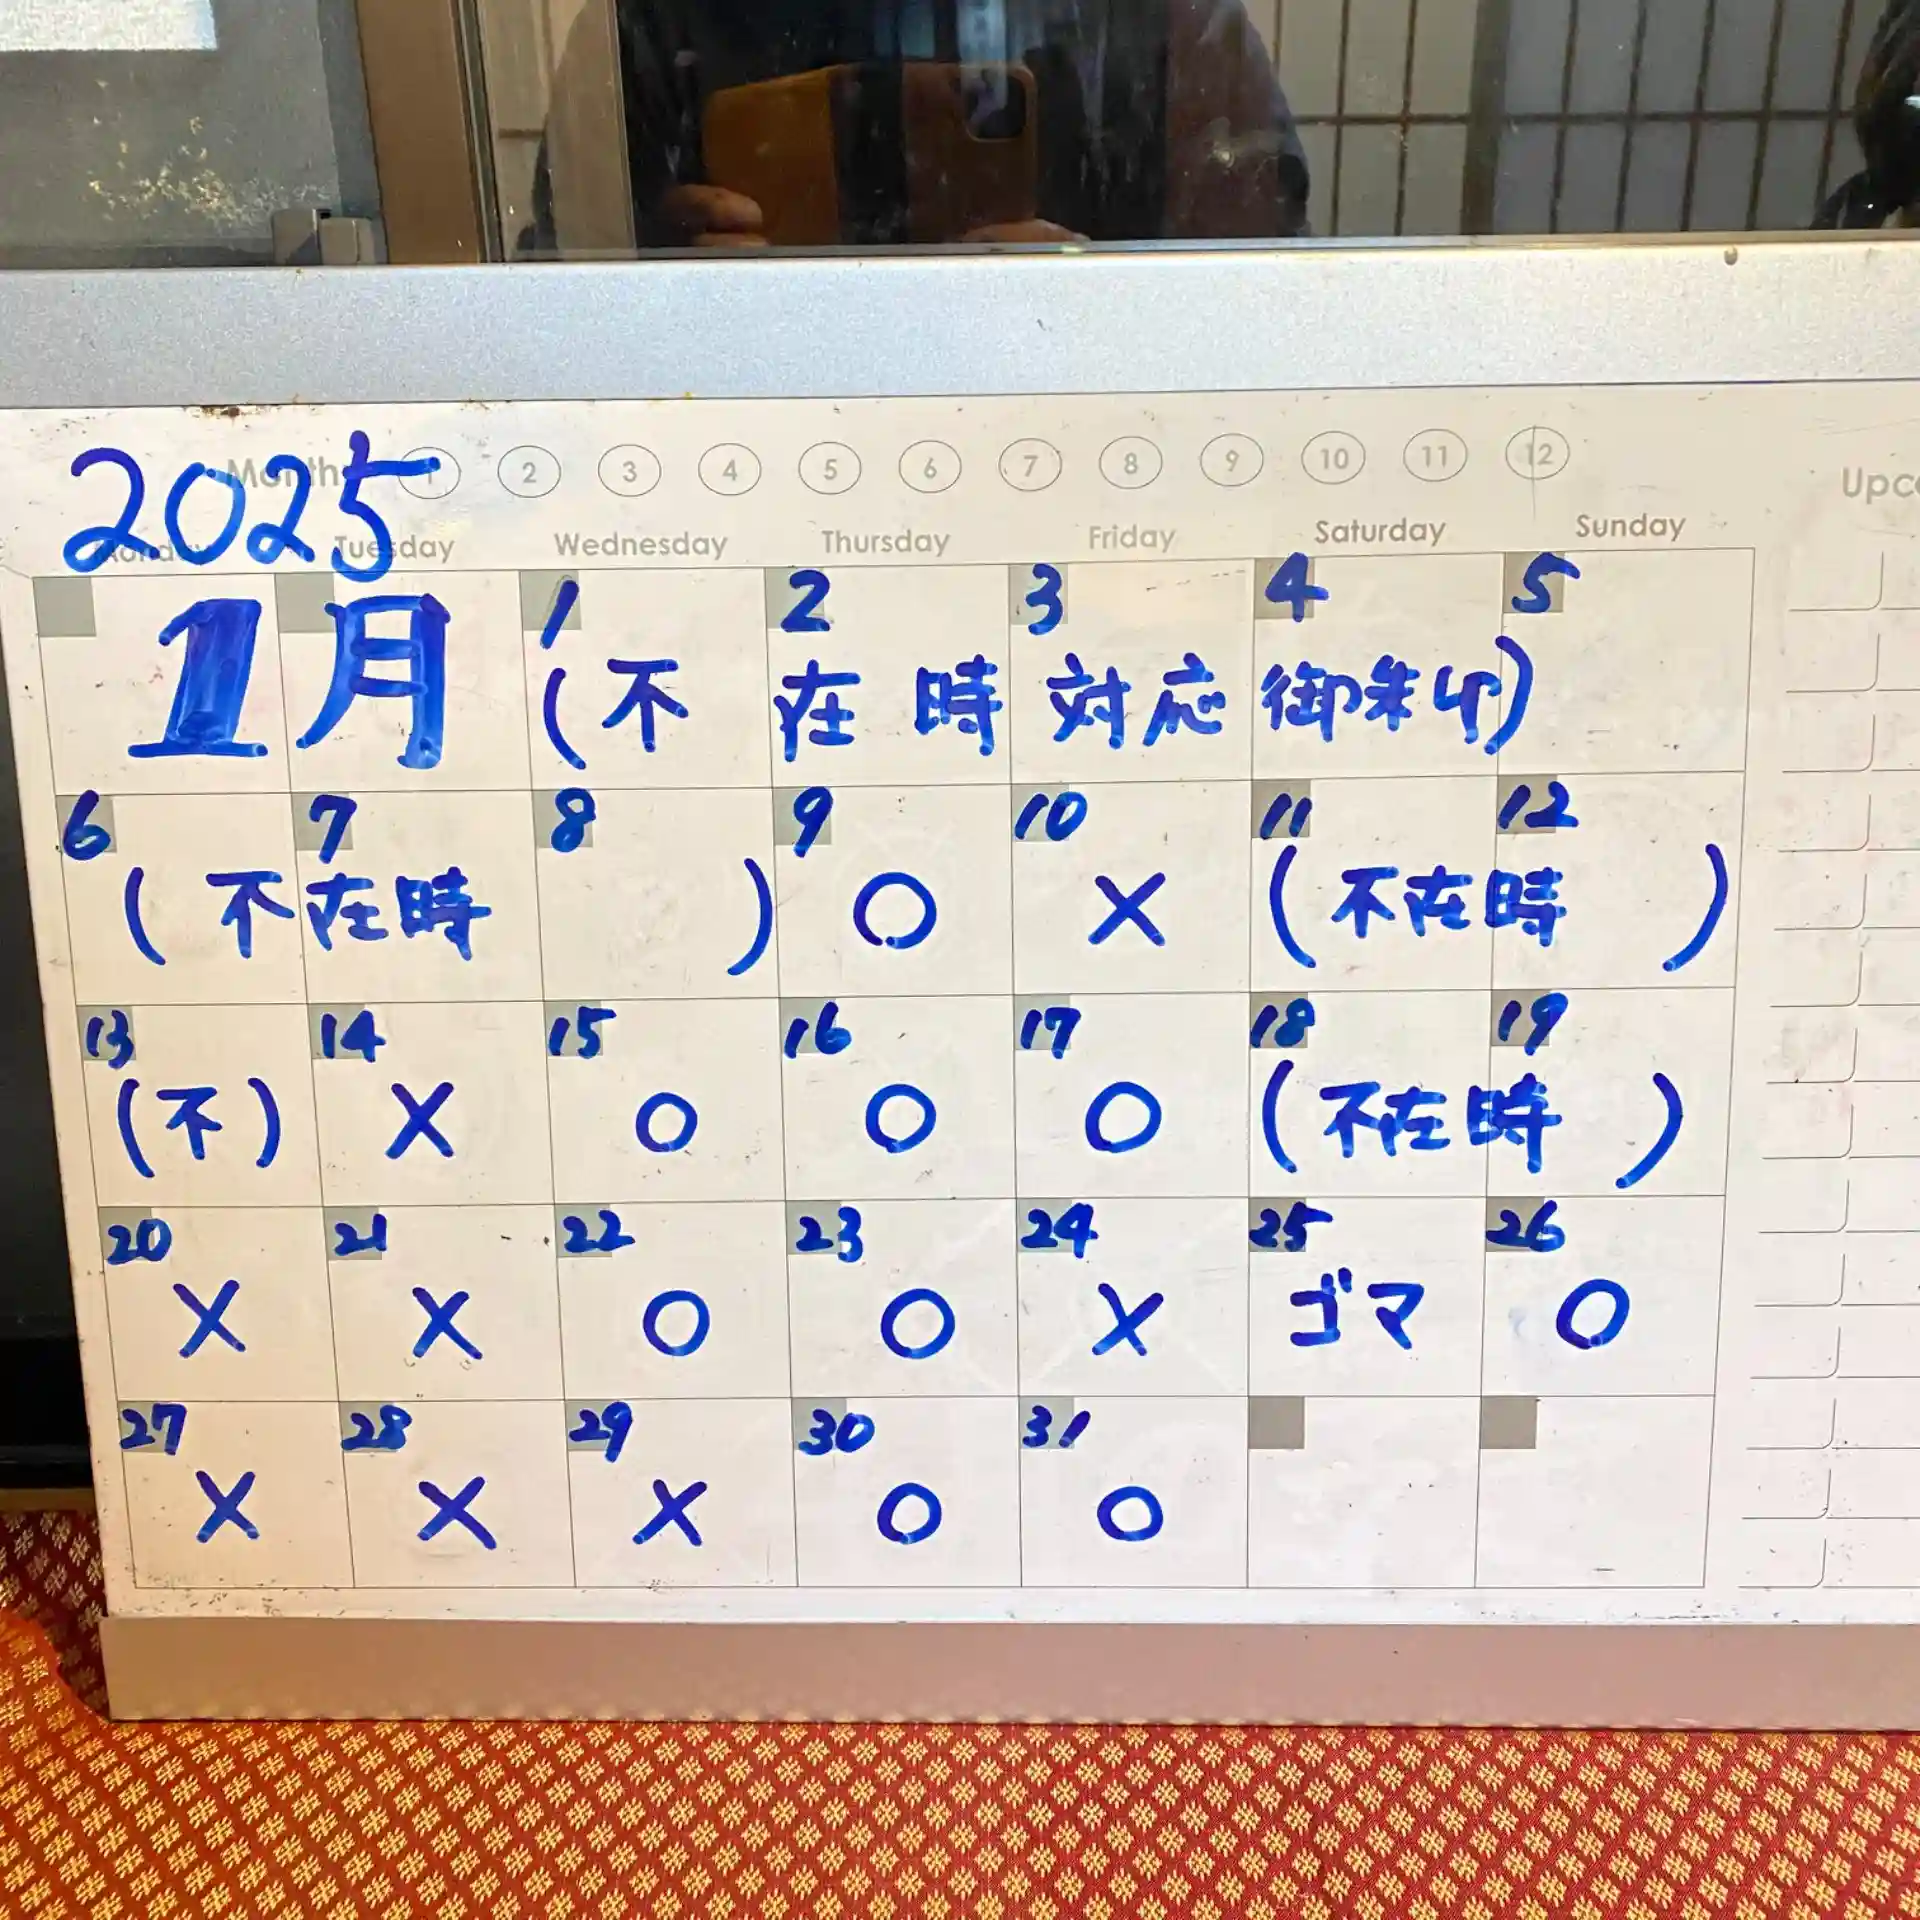 2025
Month 1 2 3 4 5 6 7 8 9 10 11 12
Monday Tuesday Wednesday Thursday Friday Saturday Sunday
1月
1 2 3 4 5
(不在時対応御朱印)
6 7 8 9 10 11 12
(不在時 ) ○ × (不在時 )
13 14 15 16 17 18 19
(不) × ○ ○ ○ (不在時 )
20 21 22 23 24 25 26
× × ○ ○ × ゴマ ○
27 28 29 30 31
× × × ○ ○